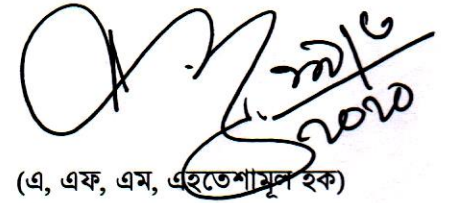 ২০২০
(এ, এফ, এম, এহতেশামূল হক)